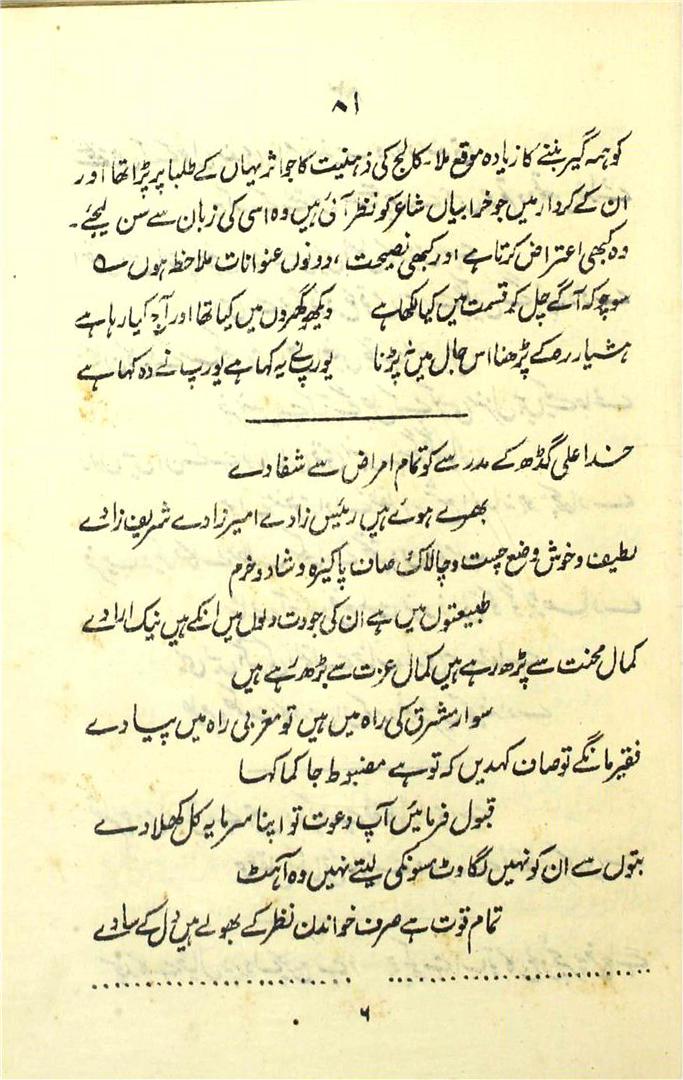 ۸۱
کو ہمہ گیر بننے کا زیادہ موقع ملا۔ کالج کی ذہنیت کا جو اثر یہاں کے طلبا پر پڑا تھا اور
ان کے کردار میں جو خرابیاں شاعر کو نظر آئی ہیں وہ اسی کی زبان سے سن لیجئے۔
وہ کبھی اعتراض کرتا ہے اور کبھی نصیحت ، دونوں عنوانات ملاحظہ ہوں ؎
سوچو کہ آگے چل کر قسمت میں کیا لکھا ہے دیکھو گھروں میں کیا تھا اور آج کیا رہا ہے
ہشیار رہ کے پڑھنا اس جال میں نہ پڑنا یورپ نے یہ کہا ہے یورپ نے وہ کہا ہے
خدا علی گڈھ کے مدرسے کو تمام امراض سے شفا دے
بھرے ہوئے ہیں رئیس زادے امیر زادے شریف زادے
لطیف و خوش وضع چست و چالاک صاف پاکیزہ و شاد و خرم
طبیعتوں میں ہے ان کی جودت دلوں میں انکے ہیں نیک ارادے
کمال محنت سے پڑھ رہے ہیں کمال عزت سے بڑھ رہے ہیں
سوار مشرق کی راہ میں ہیں تو مغربی راہ میں پیادے
فقیر مانگے تو صاف کہدیں کہ تو ہے مضبوط جا کما کھا
قبول فرمائیں آپ دعوت تو اپنا سرمایہ کل کھلا دے
بتوں سے ان کو نہیں لگاوٹ مسوں کی لیتے نہیں وہ آہٹ
تمام قوت ہے صرف خواندن نظر کے بھولے ہیں دل کے سادے
۶